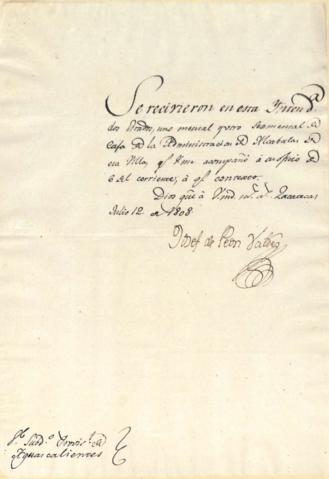 Se recivieron en esta Yntend.ª
dos Estados, uno mensual y otro semanal de
Casa de la Administracion de Alcabalas de
esa Villa, qᵉ Vmd acompañó à su oficio de
6 del corriente, à qᵉ contexto.
Dios gûe à Vmd mˢ. aˢ. Zacatecas
Julio 12 de 1808.
Josef de Peon Valdés
Sʳ. Subd.º de
Aguascalientes